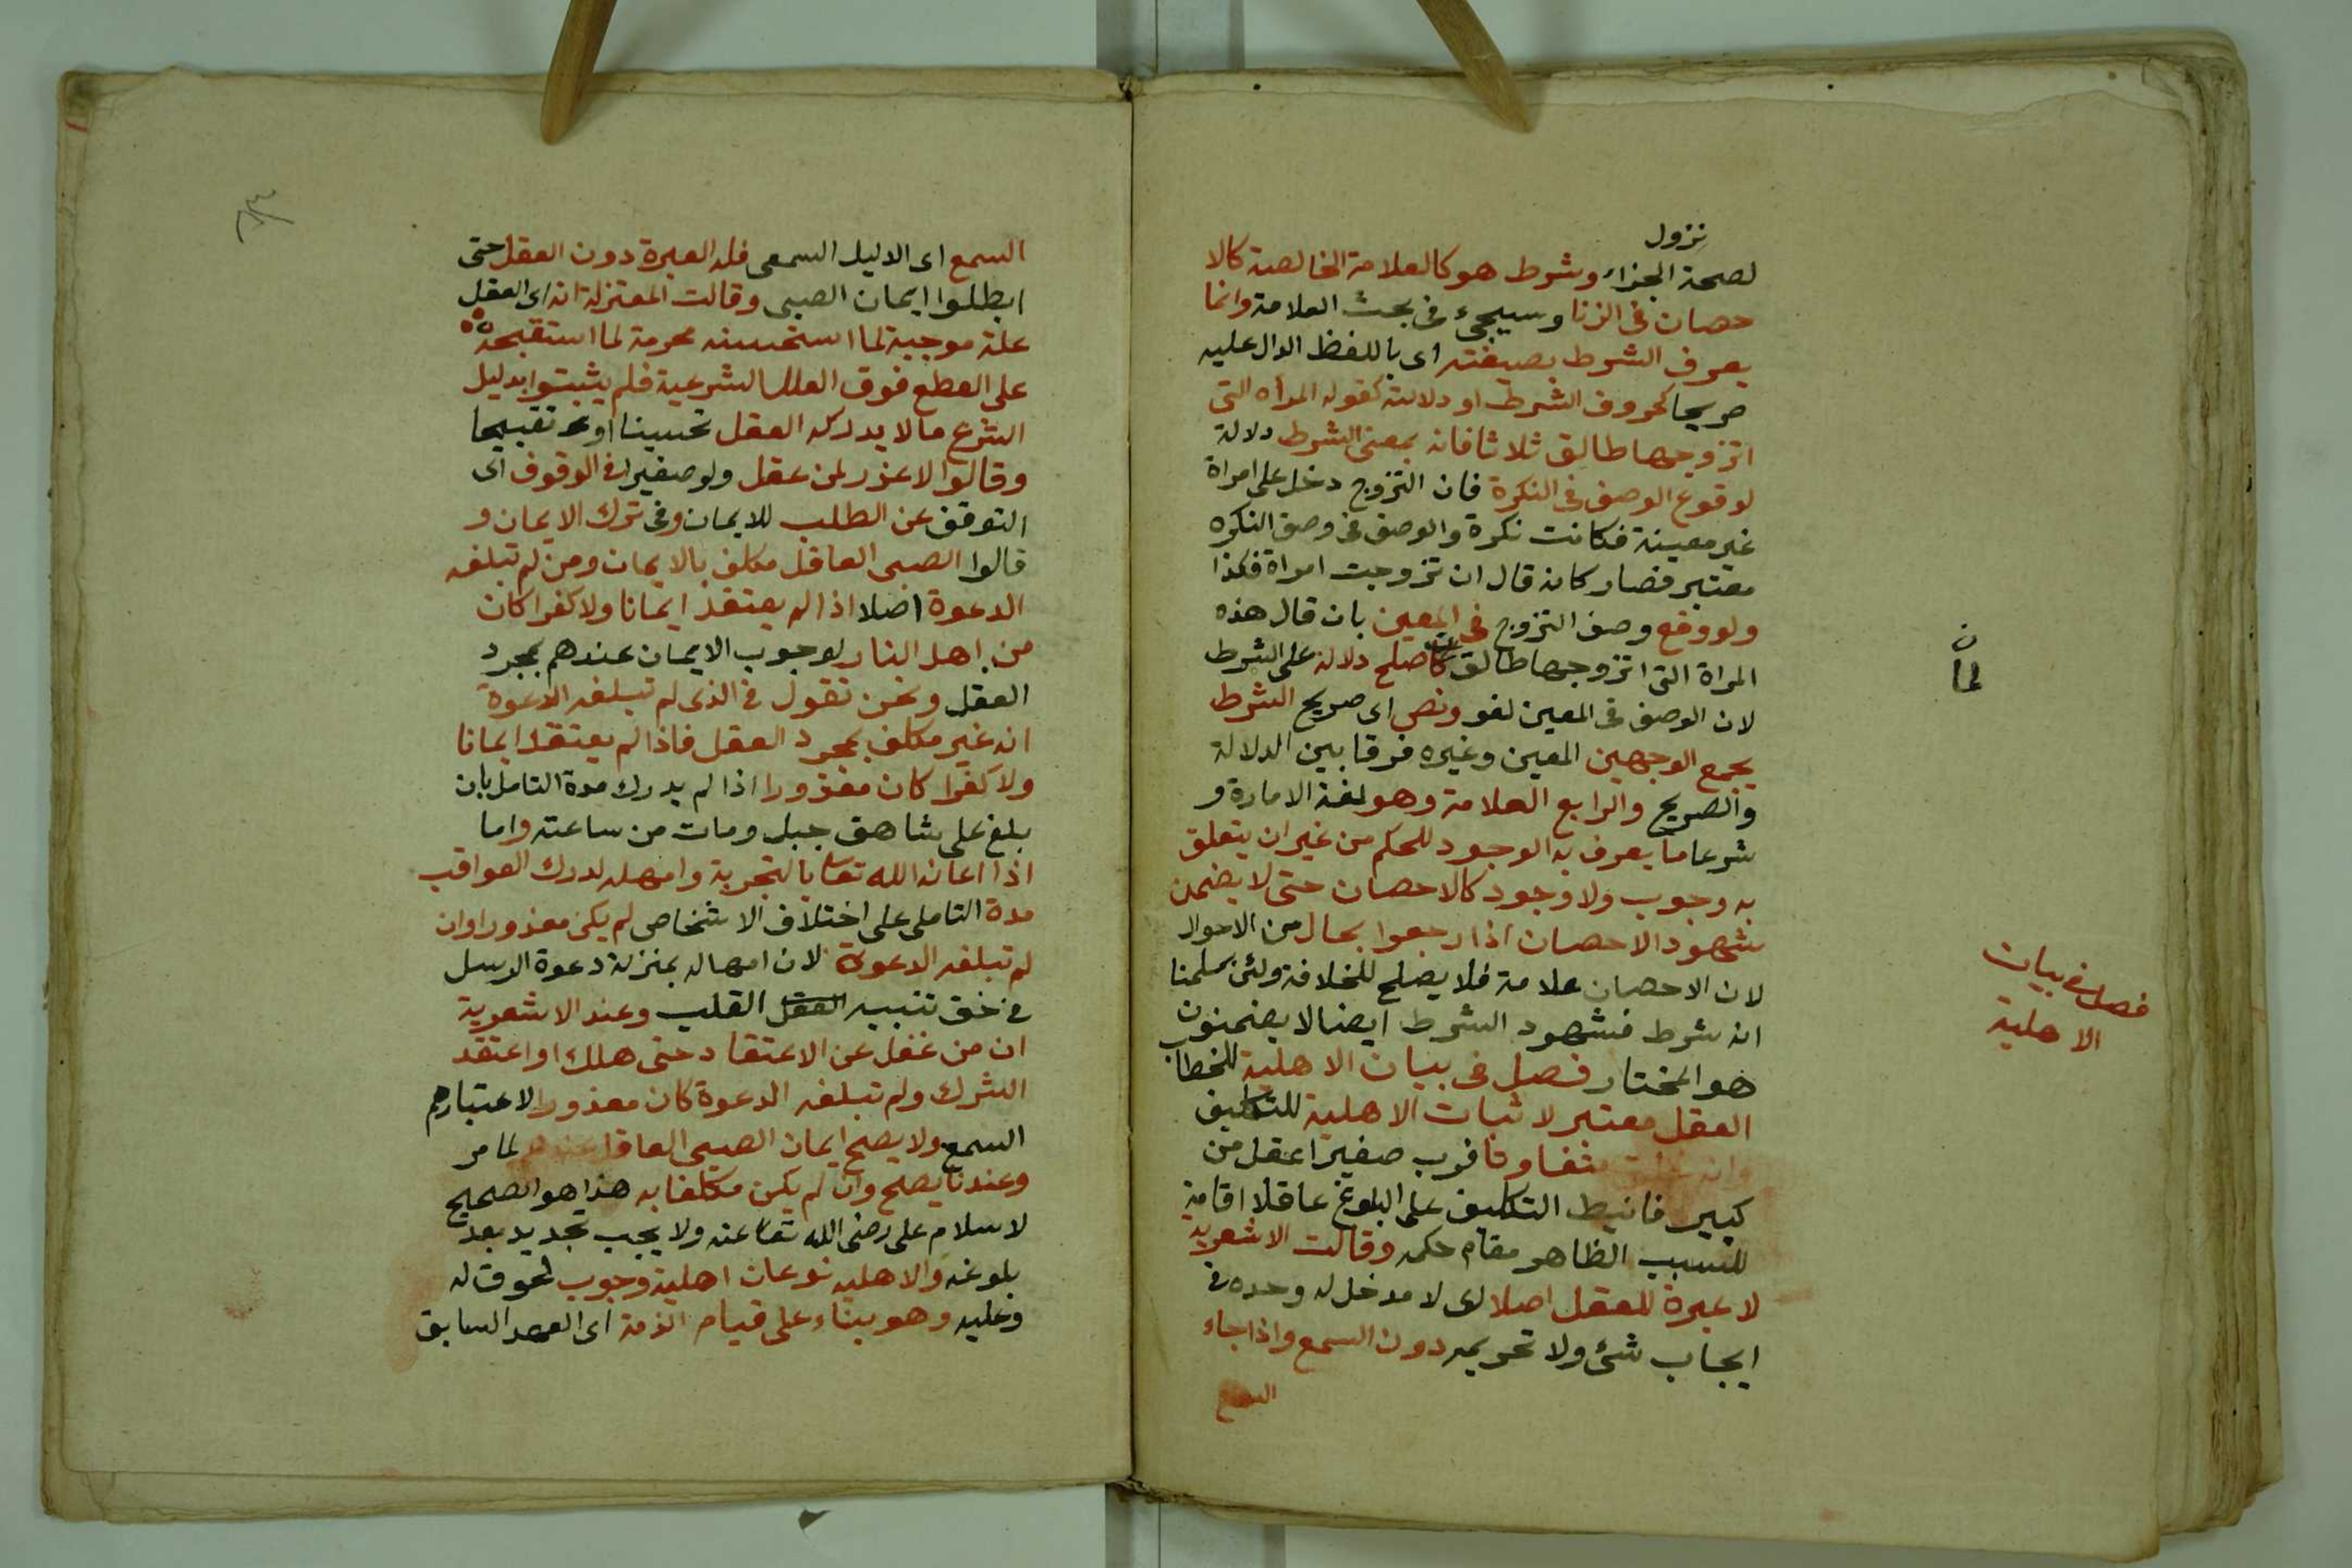 نزول
لصحة الجزاء وشرط هو كالعلامة الخالصة كالا
حصان فى الزنا وسيجىء فى بحث العلامة وانما
يعرف الشرط بصيغته اى باللفظ الدال عليه
صريحا كحروف الشرط او دلالته كقوله المراه التى
اتزوجها طالق ثلاثا فانه بمعنى الشرط دلالة
لوقوع الوصف فى النكرة فان التزوج دخل على امراة
غير معينة فكانت نكرة والوصف فى وصف النكره
معتبر فصار كانه قال ان تزوجت امراة فكذا
ولو وقع وصف التزوج فى المعين بان قال هذه
المراة التى اتزوجها طالق صلح دلالة على الشرط
لان الوصف فى المعين لغو ونص اى صريح الشرط
يجمع الوجهين المعين وغيره فرقا بين الدلالة
والصريح والرابع العلامة وهو لغة الامارة و
شرعا ما يعرف به الوجود للحكم من غير ان يتعلق
به وجوب ولا وجود كالاحصان حتى لا يضمن
شهود الاحصان اذا رجعوا بحال من الاحوال
لان الاحصان علامة فلا يصلح للخلافة ولئن سلمنا
انه شرط فشهود الشرط ايضا لا يضمنون
هو المختار فصل فى بيان الاهلية للخطاب
العقل معتبر لاثبات الاهلية للتكليف
وانه متفاوتا فرب صغير اعقل من
كبير فانيط التكليف على البلوغ عاقلا اقامة
للسبب الظاهر مقام حكمه وقالت الاشعرية
لا عبرة للعقل اصلا اى لا مدخل له وحده فى
ايجاب شئ ولا تحريمه دون السمع واذا جاء
السمع
لما
ن
فصل فى بيان
الاهلية
السمع اى الاليل السمعى فله العبرة دون العقل حتى
ابطلوا ايمان الصبى وقالت المعتزلة انه اى العقل
علة موجبة لما استحسنه محرمة لما استقبحه
على القطع فوق العلل الشرعية فلم يثبتوا بدليل
الشرع ما لا يدركه العقل تحسينا او تقبيحا
وقالوا لا عذر لمن عقل ولو صغيرا فى الوقوف اى
التوقف عن الطلب للايمان وفى ترك الايمان و
قالوا الصبى العاقل مكلف بالايمان ومن لم تبلغه
الدعوة اصلا اذا لم يعتقد ايمانا ولا كفرا كان
من اهل النار لوجوب الايمان عندهم بمجرد
العقل ونحن نقول فى الذى لم تبلغه الدعوة
انه غير مكلف بمجرد العقل فاذا لم يعتقد ايمانا
ولا كفرا كان معذورا اذا لم يدرك مدة التامل بان
بلغ على شاهق جبل ومات من ساعته واما
اذا اعانه الله تعا بالتجربة وامهله لدرك العواقب
مدة التامل على اختلاف الاشخاص لم يكن معذورا وان
لم تبلغه الدعوة لان امهاله بمنزلة دعوة الرسل
فى حق تنبيه العقل القلب وعند الاشعرية
ان من غفل عن الاعتقاد حتى هلك او اعتقد
الشرك ولم تبلغه الدعوة كان معذورا لاعتبارهم
السمع ولا يصح ايمان الصبى العاقل عندهم لما مر
وعندنا يصح وان لم يكن مكلفا به هذا هو الصحيح
لاسلام على رضى الله تعا عنه ولا يجب تجديد بعد
بلوغه والاهليه نوعان اهلية وجوب لحقوق له
وعليه وهو بناء على قيام الذمة اى العهد السابق